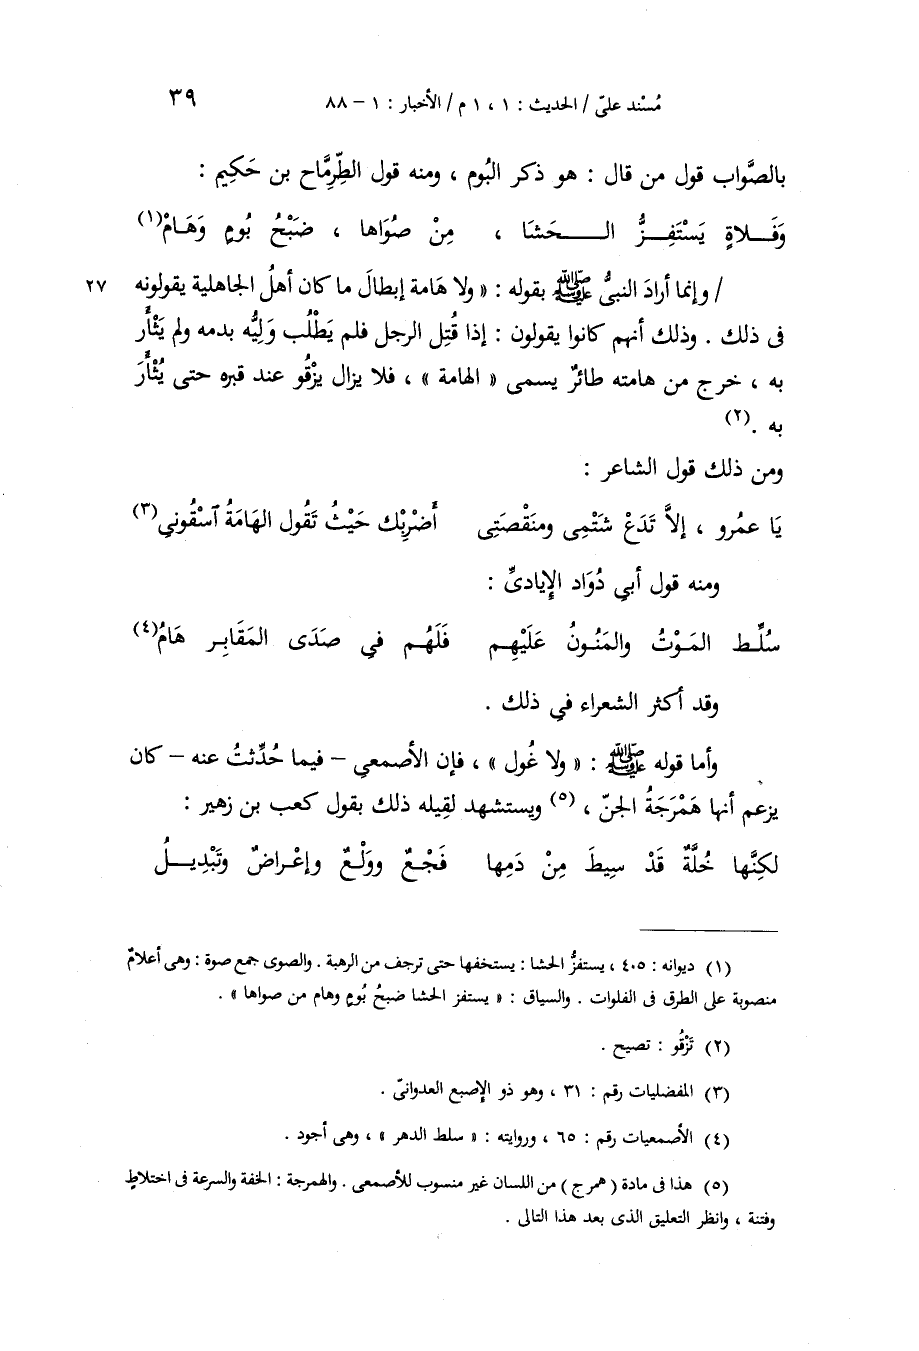 مُسْند عليّ / الحديث : ١ ، ١ م / الأخبار : ١ – ٨٨ ٣٩
بالصَّواب قول من قال : هو ذكر البُوم ، ومنه قول الطِّرِمَّاح بن حَكِيم :
وَفَـلاةٍ يَسْتَفِـزُّ الـــحَشَا ، مِنْ صُوَاها ، ضَبْحُ بُومٍ وَهَامْ(١)
/ وإنما أرادَ النبىُّ ﷺ بقوله : « ولا هَامة إبطالَ ما كان أهلُ الجاهلية يقولونه ٢٧
فى ذلك . وذلك أنهم كانوا يقولون : إذا قُتِل الرجل فلم يَطْلُب وَلِيُّه بدمه ولم يَثْأَر
به ، خرج من هامته طائرٌ يسمى « الهامة » ، فلا يزال يزْقُو عند قبره حتى يُثْأَرَ
به .(٢)
ومن ذلك قول الشاعر :
يَا عمْرو ، إلاَّ تَدَعْ شَتْمِى ومنَقْصَتِى أَضْرِبْك حَيْثُ تَقُول الهَامَةُ آسْقُونِي(٣)
ومنه قول أبي دُوَاد الإيادىِّ :
سُلِّـط المَـوْتُ والمَنُـونُ عَلَيْهِـم فَلَهُـم فِي صَدَى المَقَابِـر هَامُ(٤)
وقد أكثر الشعراء في ذلك .
وأما قوله ﷺ : « ولا غُول » ، فإن الأصمعي – فيما حُدِّثتُ عنه – كان
يزعم أنها هَمْرَجَةُ الجنّ ، (٥) ويستشهد لقِيله ذلك بقول كعب بن زهير :
لكِنَّها خُلَّةٌ قَدْ سِيطَ مِنْ دَمِها فَجْـعٌ وولْـعٌ وإعْـراضٌ وتَبْدِيــلُ
(١) ديوانه : ٤٠٥ ، يستفزُّ الحشا : يستخفها حتى ترجف من الرهبة . والصوى جمع صوة : وهى أعلامٌ
منصوبة على الطرق فى الفلوات . والسياق : « يستفز الحشا ضبحُ بُومٍ وهام من صواها » .
(٢) تَزْقُو : تصيح .
(٣) المفضليات رقم : ٣١ ، وهو ذو الإصبع العدوانىّ .
(٤) الأصمعيات رقم : ٦٥ ، وروايته : « سلط الدهر » ، وهى أجود .
(٥) هذا فى مادة ( همرج ) من اللسان غير منسوب للأصمعى . والهمرجة : الخفة والسرعة فى اختلاطٍ
وفتنة ، وانظر التعليق الذى بعد هذا التالى .